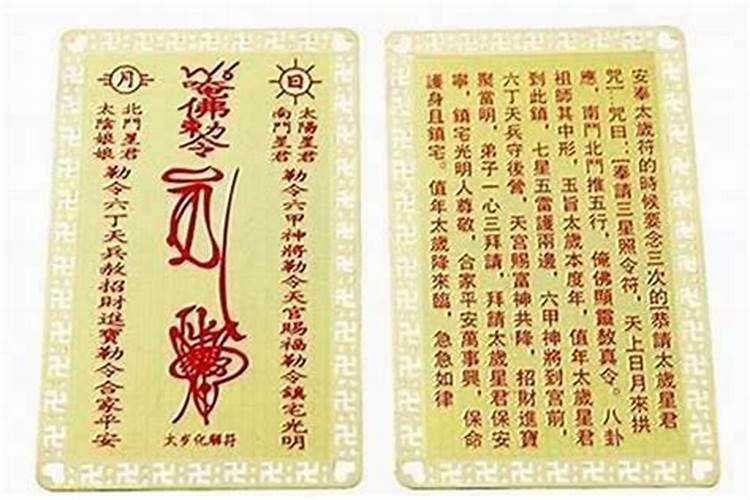 日
太陽星君
南鬥星君
勒令六甲神將勒令天官賜福勒令鎮宅光明
唵佛勅令
月
北鬥星君
太陰娘娘
勒令六丁天兵赦招財進寶勒令合家平安
太岁化解符
安奉太歲符的時候要念三次的[恭請太歲星君
咒]…咒曰:[奉請三星照令符,天上日月來拱
應,南鬥北鬥推五行,俺佛顯靈敎真令。八卦
祖師其中形,玉旨太歲本度年,值年太歲星君
到此鎮,七星五雷護兩邊,六甲神將到宮前,
六丁天兵守後營,天宮賜富神共降,招財進寶
聚當明,弟子一心三拜請,拜請太歲星君保安
寧,鎮宅光明人尊敬,合家平安萬事興,保命
護身且鎮宅。值年太歲降來臨,急急如律